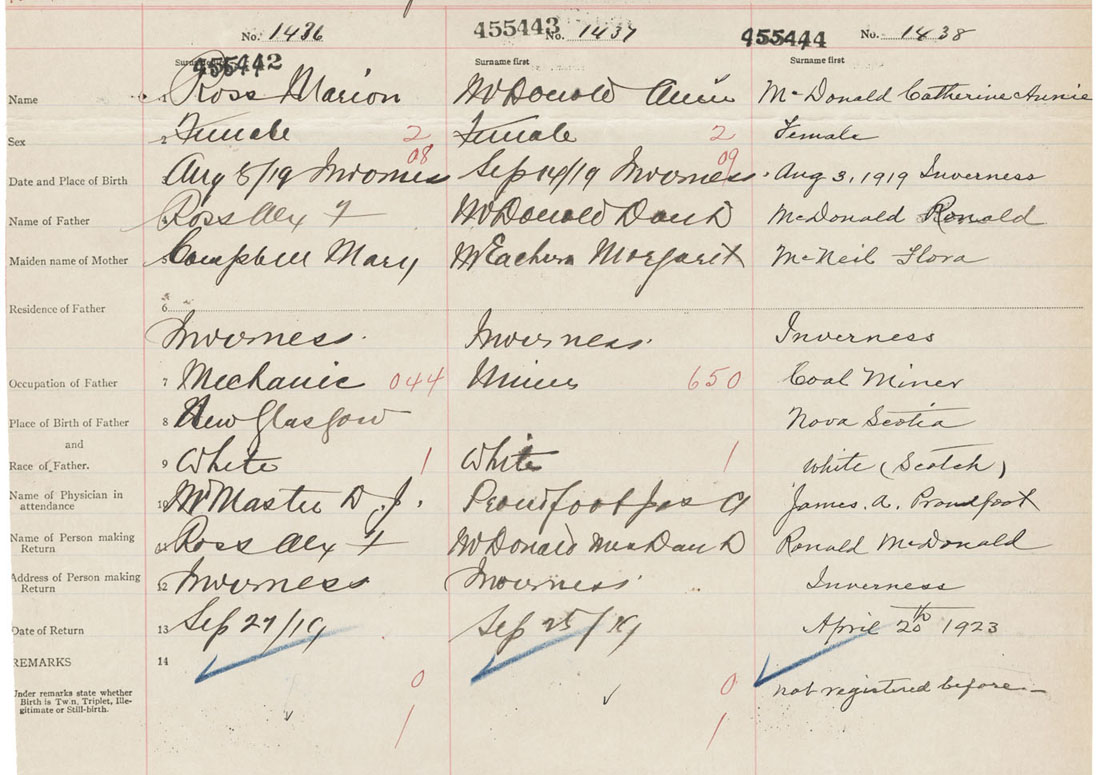 No. 1436
455442
Surname first
455443
No. 1437
Surname first
455444
No. 1438
Surname first
Name 1 Ross Marion McDonald Annie McDonald Catherine Annie
Sex 2 Female 2 Female 2 Female
08 09
Date and Place of Birth 3 Aug 8/19 Inverness Sep 14/19 Inverness Aug 3, 1919 Inverness
Name of Father 4 Ross Alex F McDonald Dan D McDonald Ronald
Maiden name of Mother 5 Campbell Mary McEachern Margaret McNeil Flora
Residence of Father 6
Inverness. Inverness. Inverness
Occupation of Father 7 Mechanic 044 Miner 650 Coal Miner
Place of Birth of Father 8 New Glasgow Nova Scotia
and
Race of Father. 9 White 1 White 1 White (Scotch)
Name of Physician in attendance 10 McMaster D. J. Proudfoot Jas A James. A. Proudfoot
Name of Person making Return 11 Ross Alex F McDonald Mrs Dan D Ronald McDonald
Address of Person making Return 12 Inverness Inverness Inverness
Date of Return 13 Sep 27/19 Sep 25/19 April 20th 1923
REMARKS 14
0 0 not registered before—
Under remarks state whether
Birth is Twin, Triplet, Ille-
gitimate or Still-birth.
1 1